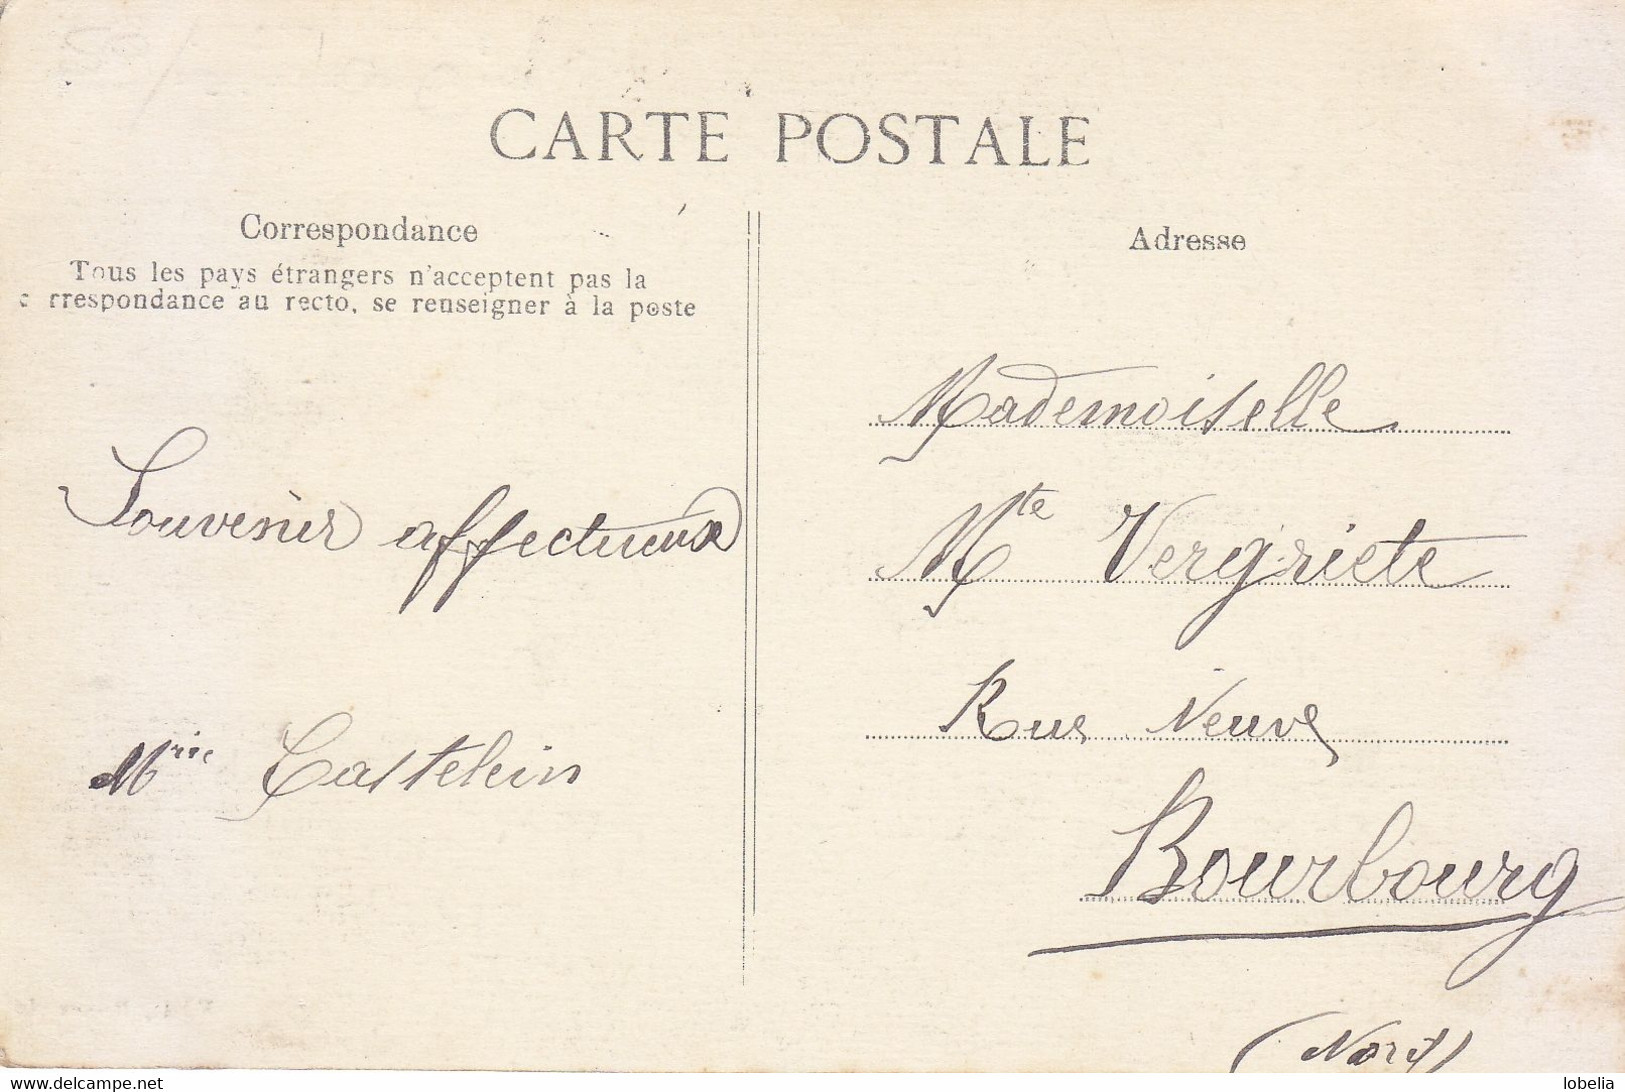 CARTE POSTALE
Correspondance
Tous les pays étrangers n'acceptent pas la
c rrespondance au recto, se renseigner à la poste
Souvenir affectueux
Mrie Castelein
Adresse
Mademoiselle
Mte Vergriete
Rue Neuve
Bourbourg
(Nord)
https://www.delcampe.net
lobelia